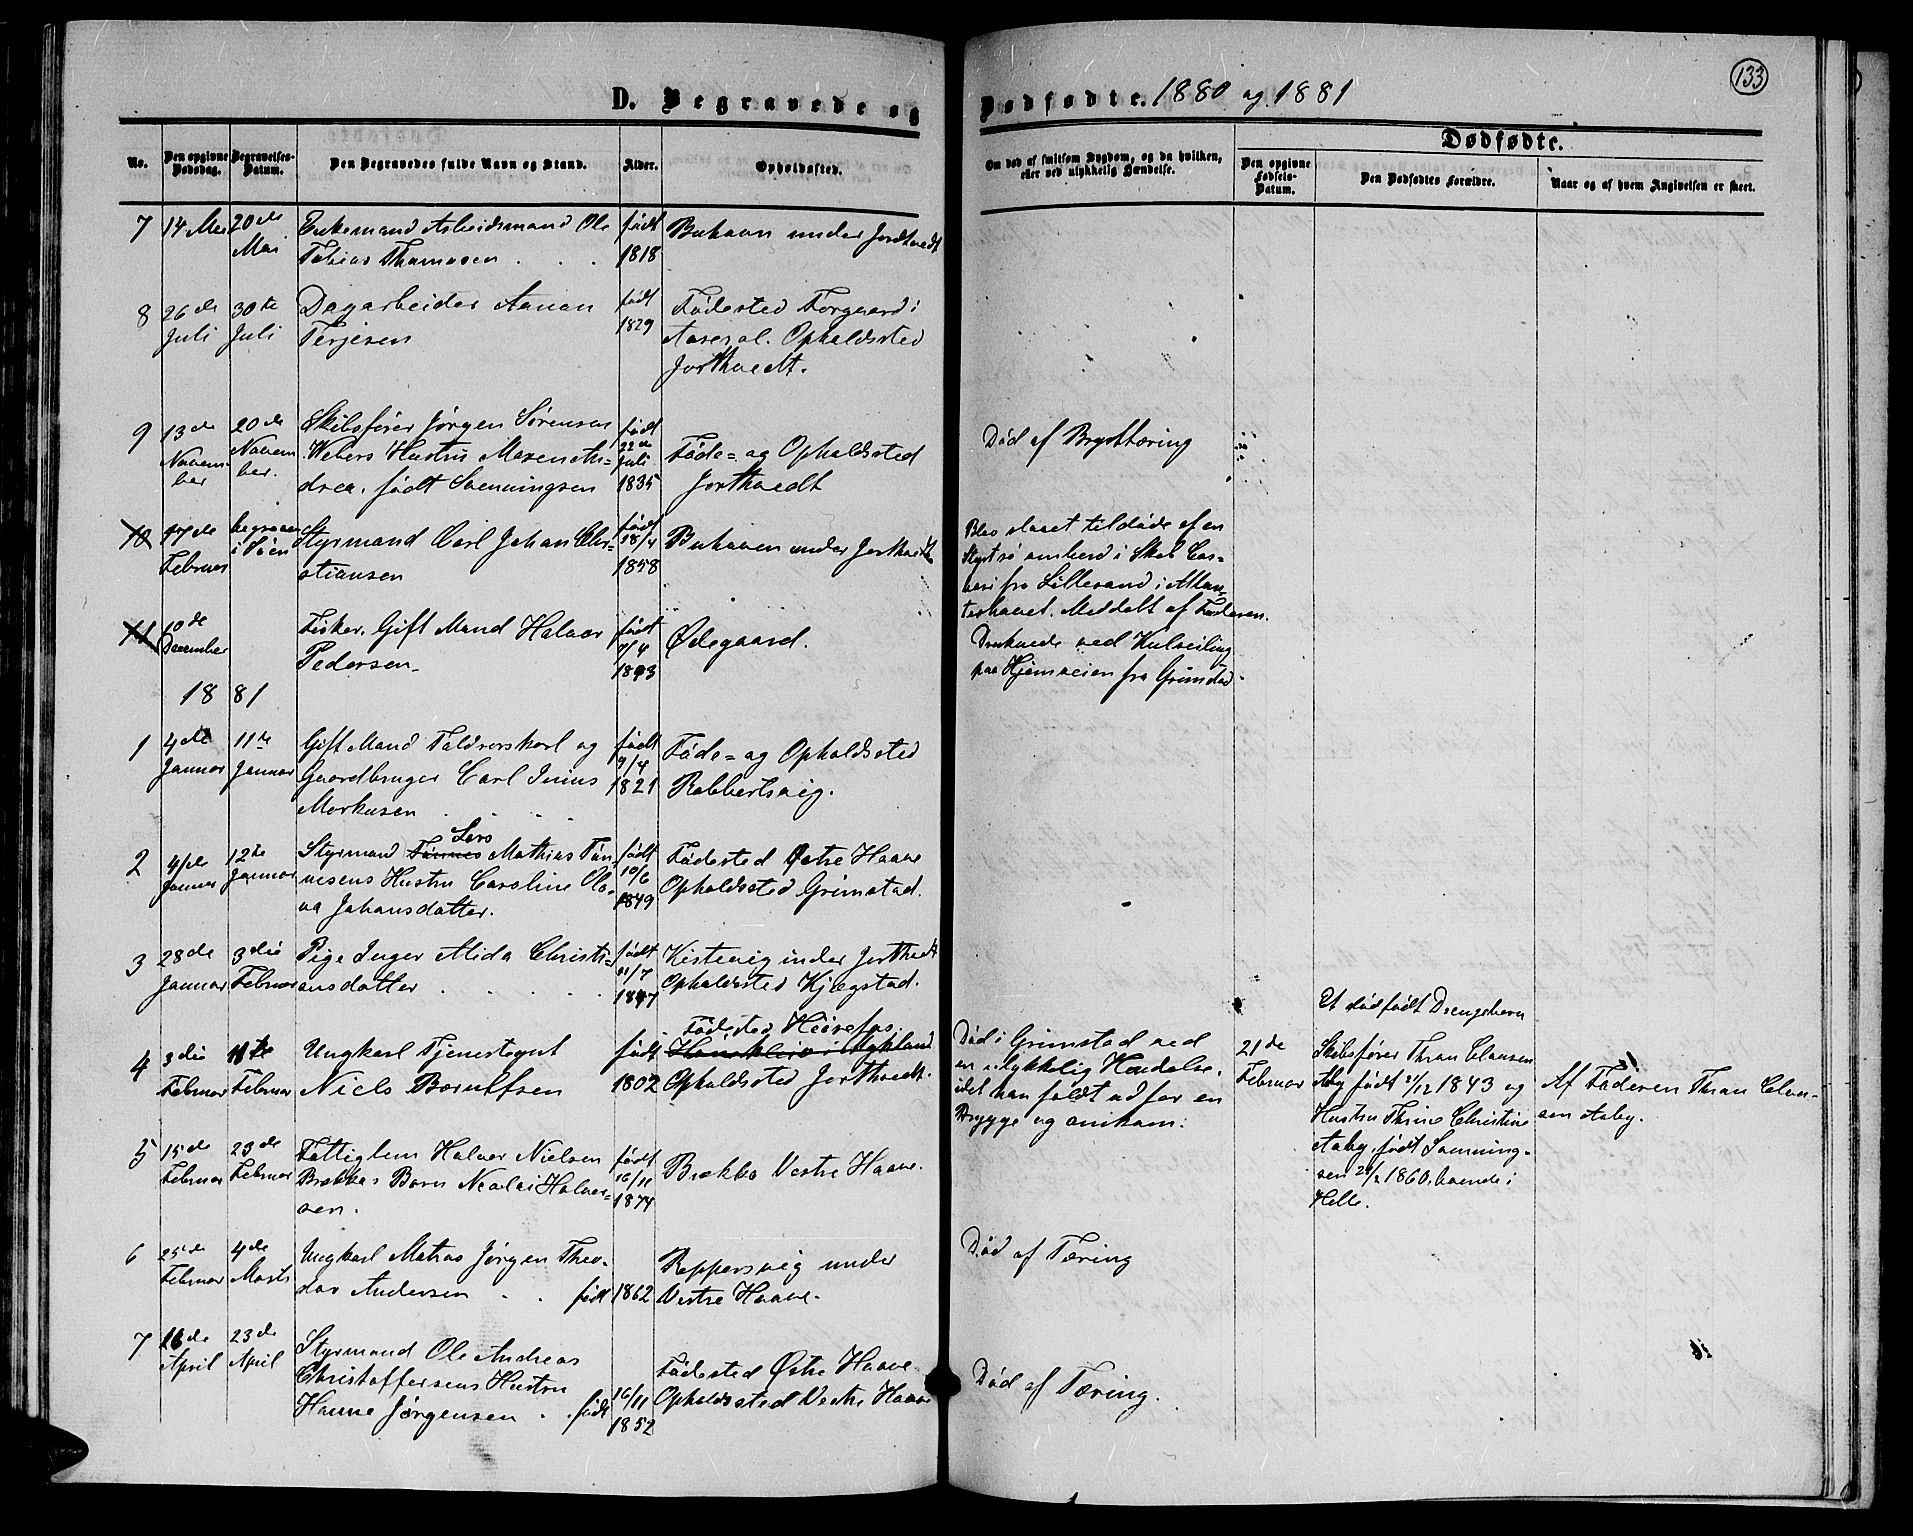 D. Begravede og Dødfødte. 1880 og 1881
133
No.
Den opgivne Dødsdag.
Begravelses-Datum.
Den Begravedes fulde Navn og Stand.
Alder.
Opholdssted.
Om død af smitsom Sygdom, og da hvilken,
eller ved ulykkelig Hændelse.
Dødfødte.
Den opgivne Fødsels-Datum.
Den Dødfødtes Forældre.
Naar og af hvem Angivelsen er skeet.
7 14 Mai 20de Enkemand Arbeidsmand Ole født Buhavn under Jorthvedt
Mai Tobias Thomasen . . . 1818
8 26de 30te Dagarbeider Aanon født Fødested Torgaard i
Juli Juli Terjesen 1829 Aaseral. Opholdssted
Jorthvedt.
9 13de 20de Skibsfører Jørgen Sørensen født
Novem- Novem Webers Hustru Maren An- 22de Juli Føde= og Opholdssted Død af Brysttæring
ber ber. drea, født Svenningsen 1835 Jorthvedt
10 17de begraven Styrmand Carl Johan Chri- født 18/4 Buhaven under Jorthvedt
Februar i Søen stiansen 1858
Blev slaaet tildøde af en
Styrtsø omberd i Skib
fra Lillesand i Atlan-
terhavet. Meddelt af Faderen.
11 10de Fisker, Gift Mand Halvor født Ødegaard. Druknede ved Kulseiling
December Pedersen 9/4 1843 paa Hjemveien fra Grimstad.
1881
1 4de 11te Gift Mand Toldrorskarl og født Føde= og Opholdssted
Januar Januar Gaardbruger Carl Junius 9/4 1821 Robbertsvig.
Markusen . . .
2 4de 12te Styrmand Tønnes Lars Mathias Tøn- født Fødested Østre Haave
Januar Januar nesens Hustru Caroline Ole- 10/6 Opholdssted Grimstad.
va Johansdatter. 1849
3 28de 3die Pige Inger Alida Christi- født Kistevig under Jorthvedt
Januar Februar ansdatter . . . . /7 1847 Opholdssted Kjægstad.
4 3die 11te Ungkarl Tjenestegut født Fødested
Februar Februar Niels Borulfsen 1802 Opholdssted Jorthvedt.
Død i Grimstad ved
en ulykkelig Hændelse,
idet han faldt ud for en
Brygge og omkom.
21de
Februar
Et dødfødt Drengebarn
Skibsfører Thran Clausen
Aaby født 21/12 1843 og
Hustru Thrine Christine
Aaby, født Sonning-
sen 1860, boende i
Helle.
Af Faderen Thran Clau-
sen Aaby.
5 15de 23de Fattiglem Halvor Nielsen født Brækka Vestre Haave.
Februar Februar Brækkas Barn Nicolai Halvor- 16/11
sen. 1874
6 25de 4de Ungkarl Matias Jørgen Theo- Reppersvig under Død af Tæring
Februar Marts dor Andersen . . født 1862 Vestre Haave.
7 16de 23de Styrmand Ole Andreas Fødested Østre Haave Død af Tæring.
April April Christoffersens Hustru 16/11 Opholdssted Vestre Haave
Hanne Jørgensen . . født 1852